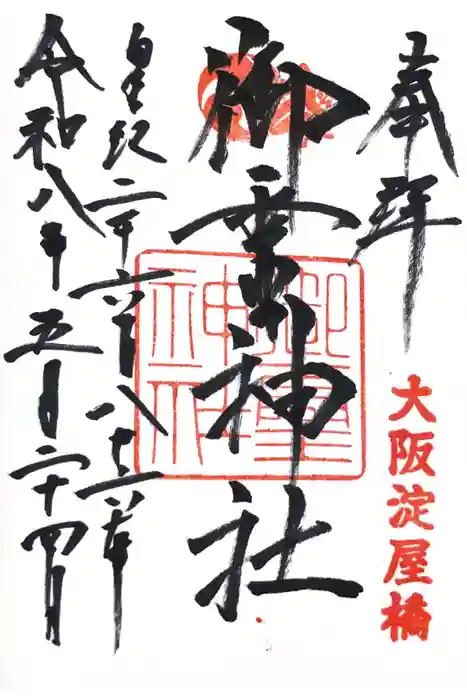 奉拝
大阪淀屋橋
御霊神社
御霊
神社
皇紀二千六百八十六年
令和八年五月二十四日